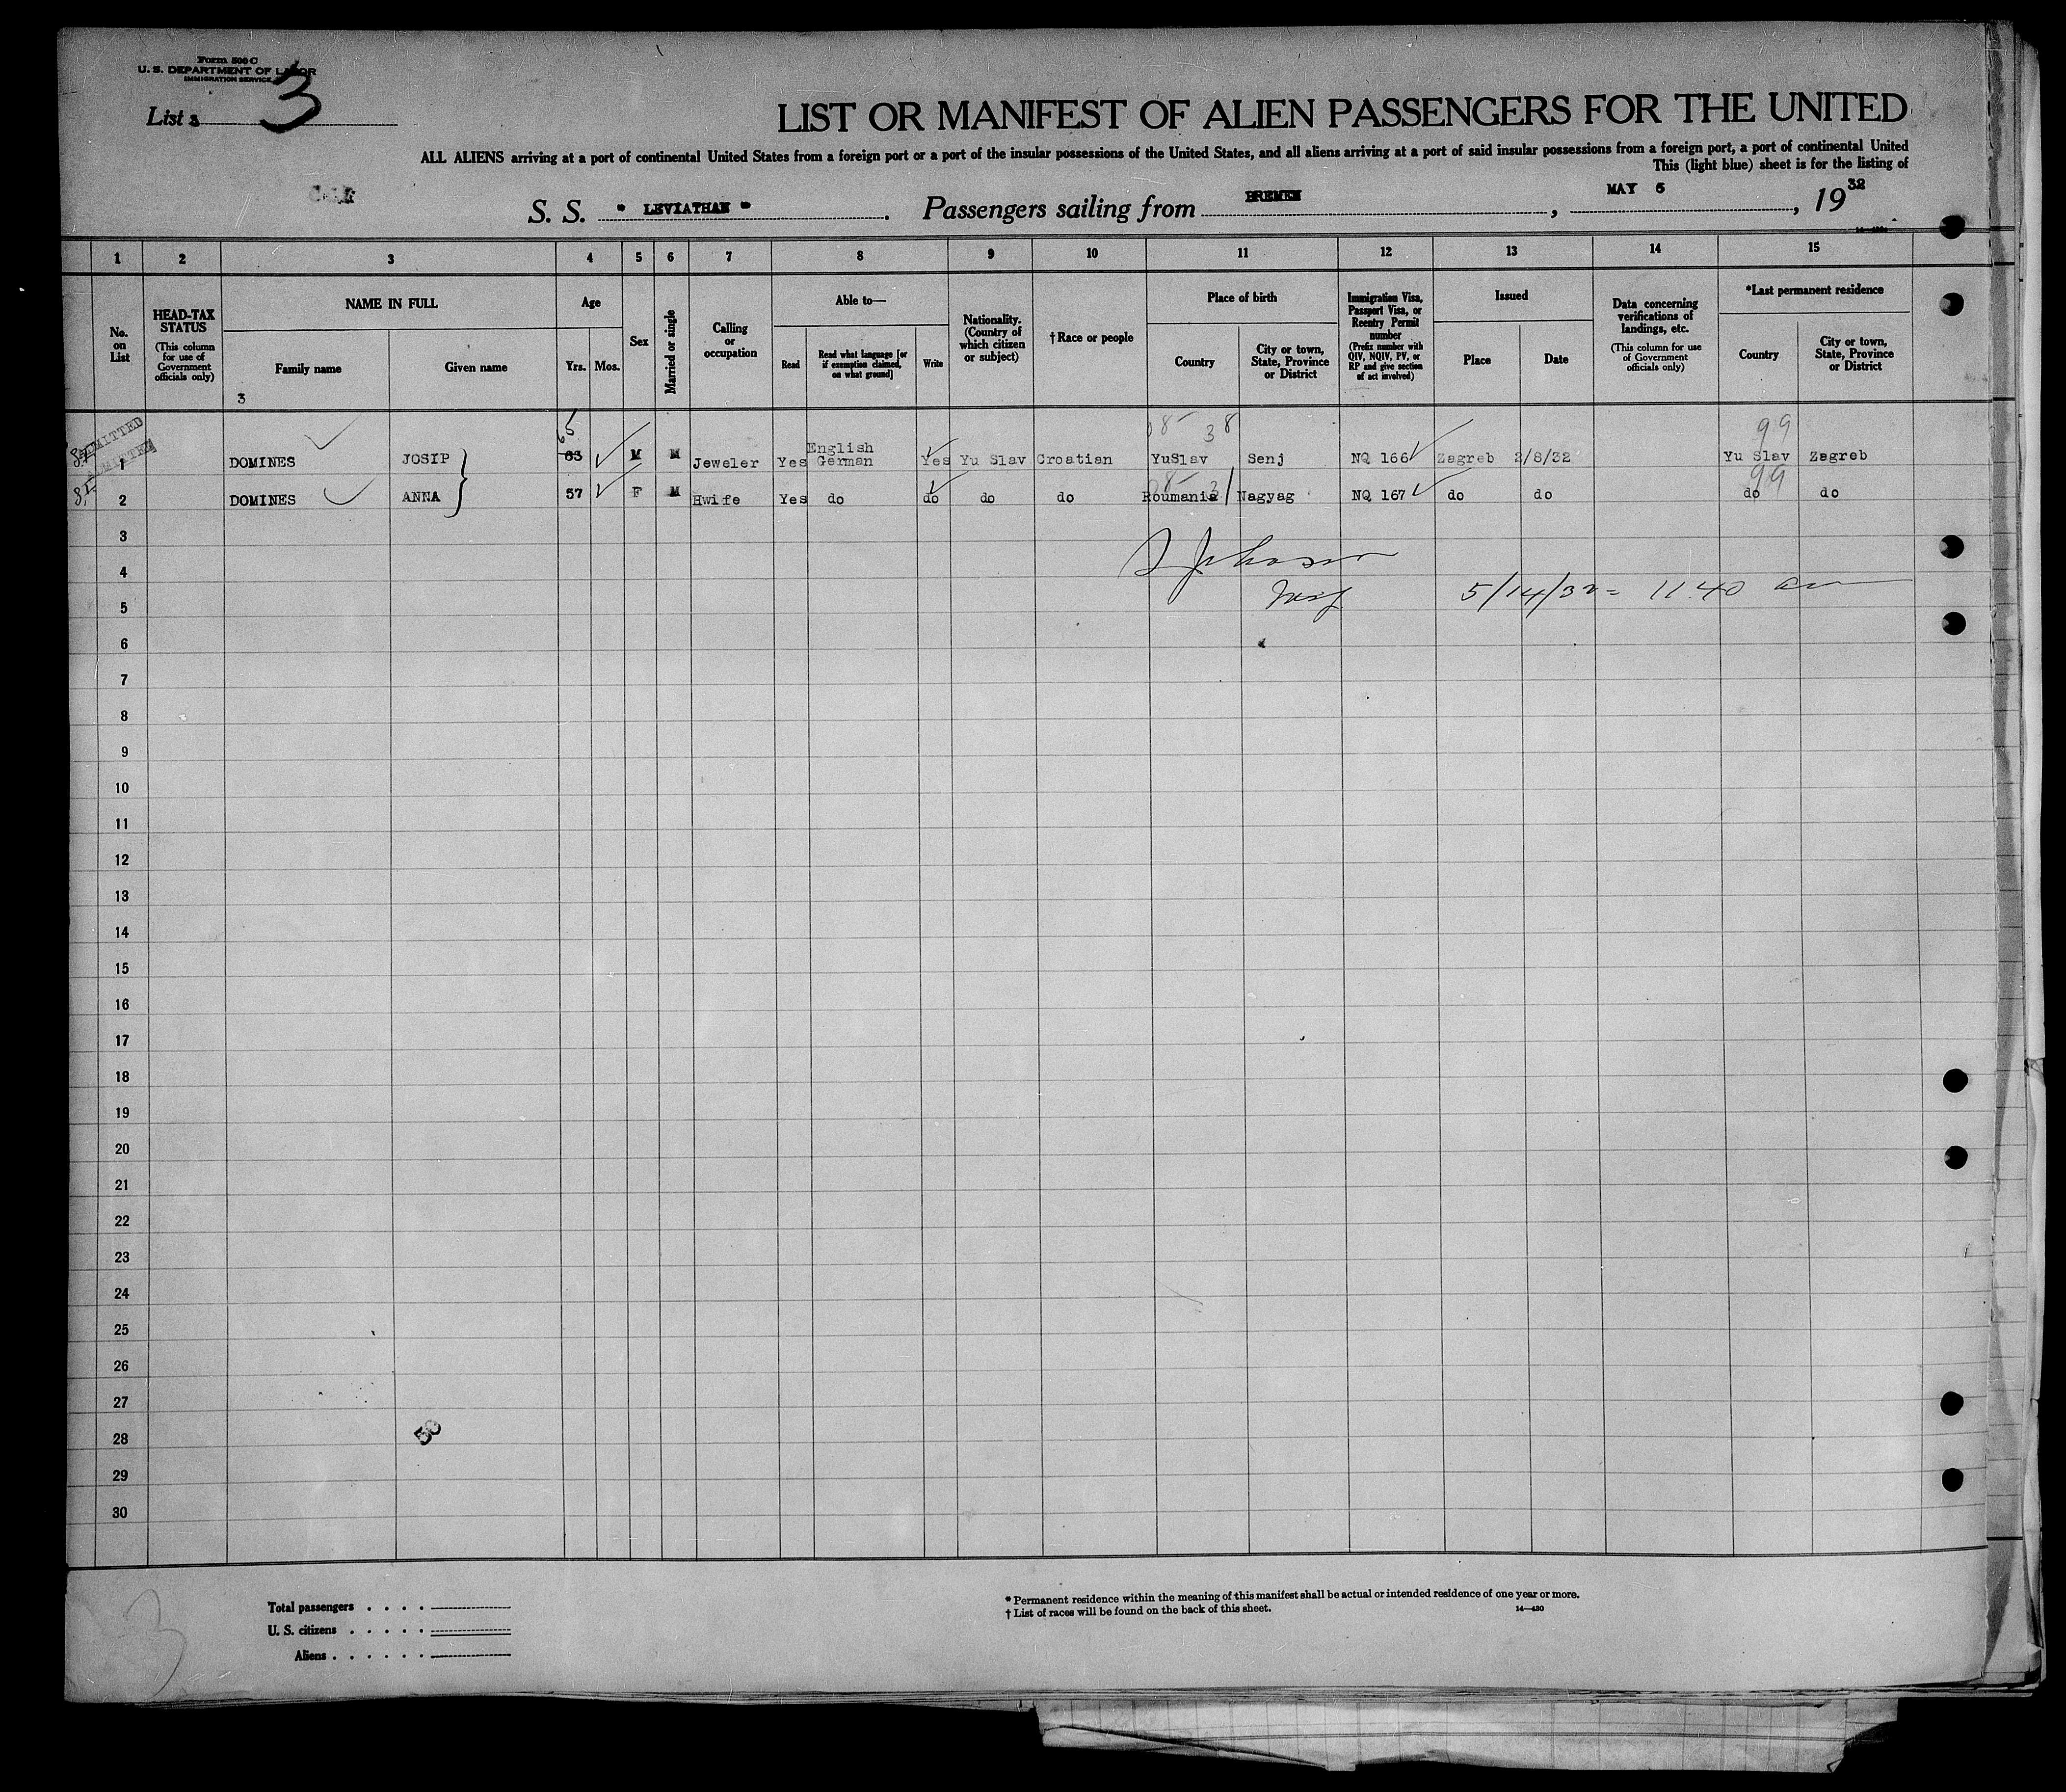 Form 500 C
U. S. DEPARTMENT OF LABOR
IMMIGRATION SERVICE
List 3
3
LIST OR MANIFEST OF ALIEN PASSENGERS FOR THE UNITED
ALL ALIENS arriving at a port of continental United States from a foreign port or a port of the insular possessions of the United States, and all aliens arriving at a port of said insular possessions from a foreign port, a port of continental United
This (light blue) sheet is for the listing of
S. S. " LEVIATHAN ". Passengers sailing from BREMEN, MAY 6, 19 32
1 2 3 4 5 6 7 8 9 10 11 12 13 14 15
No. on List
HEAD-TAX STATUS (This column for use of Government officials only)
NAME IN FULL
Family name
Given name
3
Age
Yrs. Mos.
Sex
Married or single
Calling or occupation
Able to—
Read
Read what language [or if exemption claimed, on what ground]
Write
Nationality. (Country of which citizen or subject)
† Race or people
Place of birth
Country
City or town, State, Province or District
Immigration Visa, Passport Visa, or Reentry Permit number (Prefix number with QIV, NQIV, PV, or RP and give section of act involved)
Issued
Place
Date
Data concerning verifications of landings, etc. (This column for use of Government officials only)
*Last permanent residence
Country
City or town, State, Province or District
ADMITTED
65 38 99
1 DOMINES JOSIP 63 M M Jeweler Yes English German Yes Yu Slav Croatian YuSlav Senj NQ 166 Zagreb 2/8/32 Yu Slav Zagreb
ADMITTED
99
2 DOMINES ANNA 57 F M Hwife Yes do do do do Roumania Nagyag NQ 167 do do do do
3
4
Johnson
5
5/14/32 = 11.40 am
6
7
8
9
10
11
12
13
14
15
16
17
18
19
20
21
22
23
24
25
26
27
28
53
29
30
Total passengers
U. S. citizens
Aliens
3
* Permanent residence within the meaning of this manifest shall be actual or intended residence of one year or more.
† List of races will be found on the back of this sheet.
14—430